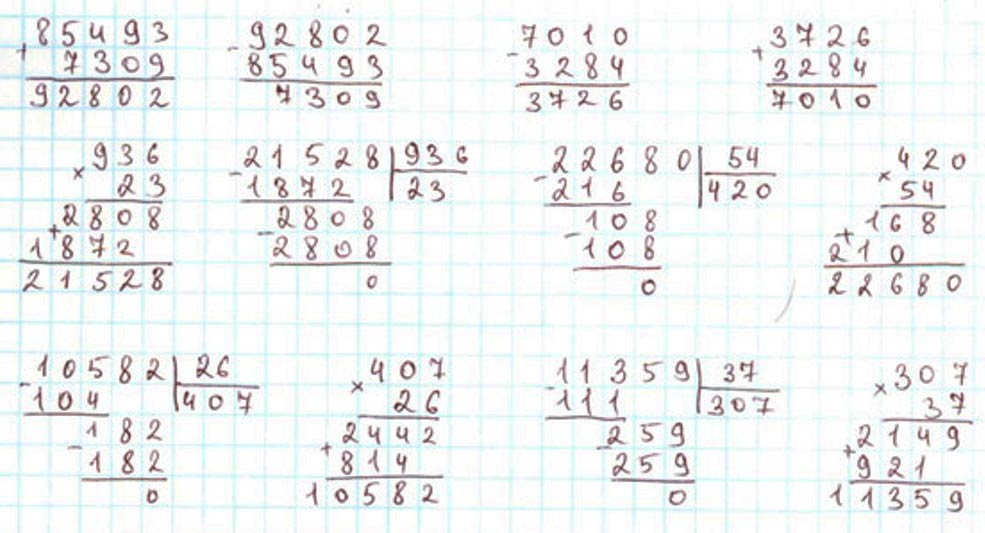 85493 92802 7010 3726
+ 7309 - 85493 - 3284 + 3284
92802 7309 3726 7010
× 936 - 21528 | 936 - 22680 | 54 × 420
23 1872 | 23 216 | 420 54
+ 2808 - 2808 - 108 + 168
1872 2808 108 210
21528 0 0 22680
- 10582 | 26 × 407 - 11359 | 37 × 307
104 | 407 26 111 | 307 37
- 182 + 2442 - 259 + 2149
182 814 259 921
0 10582 0 11359